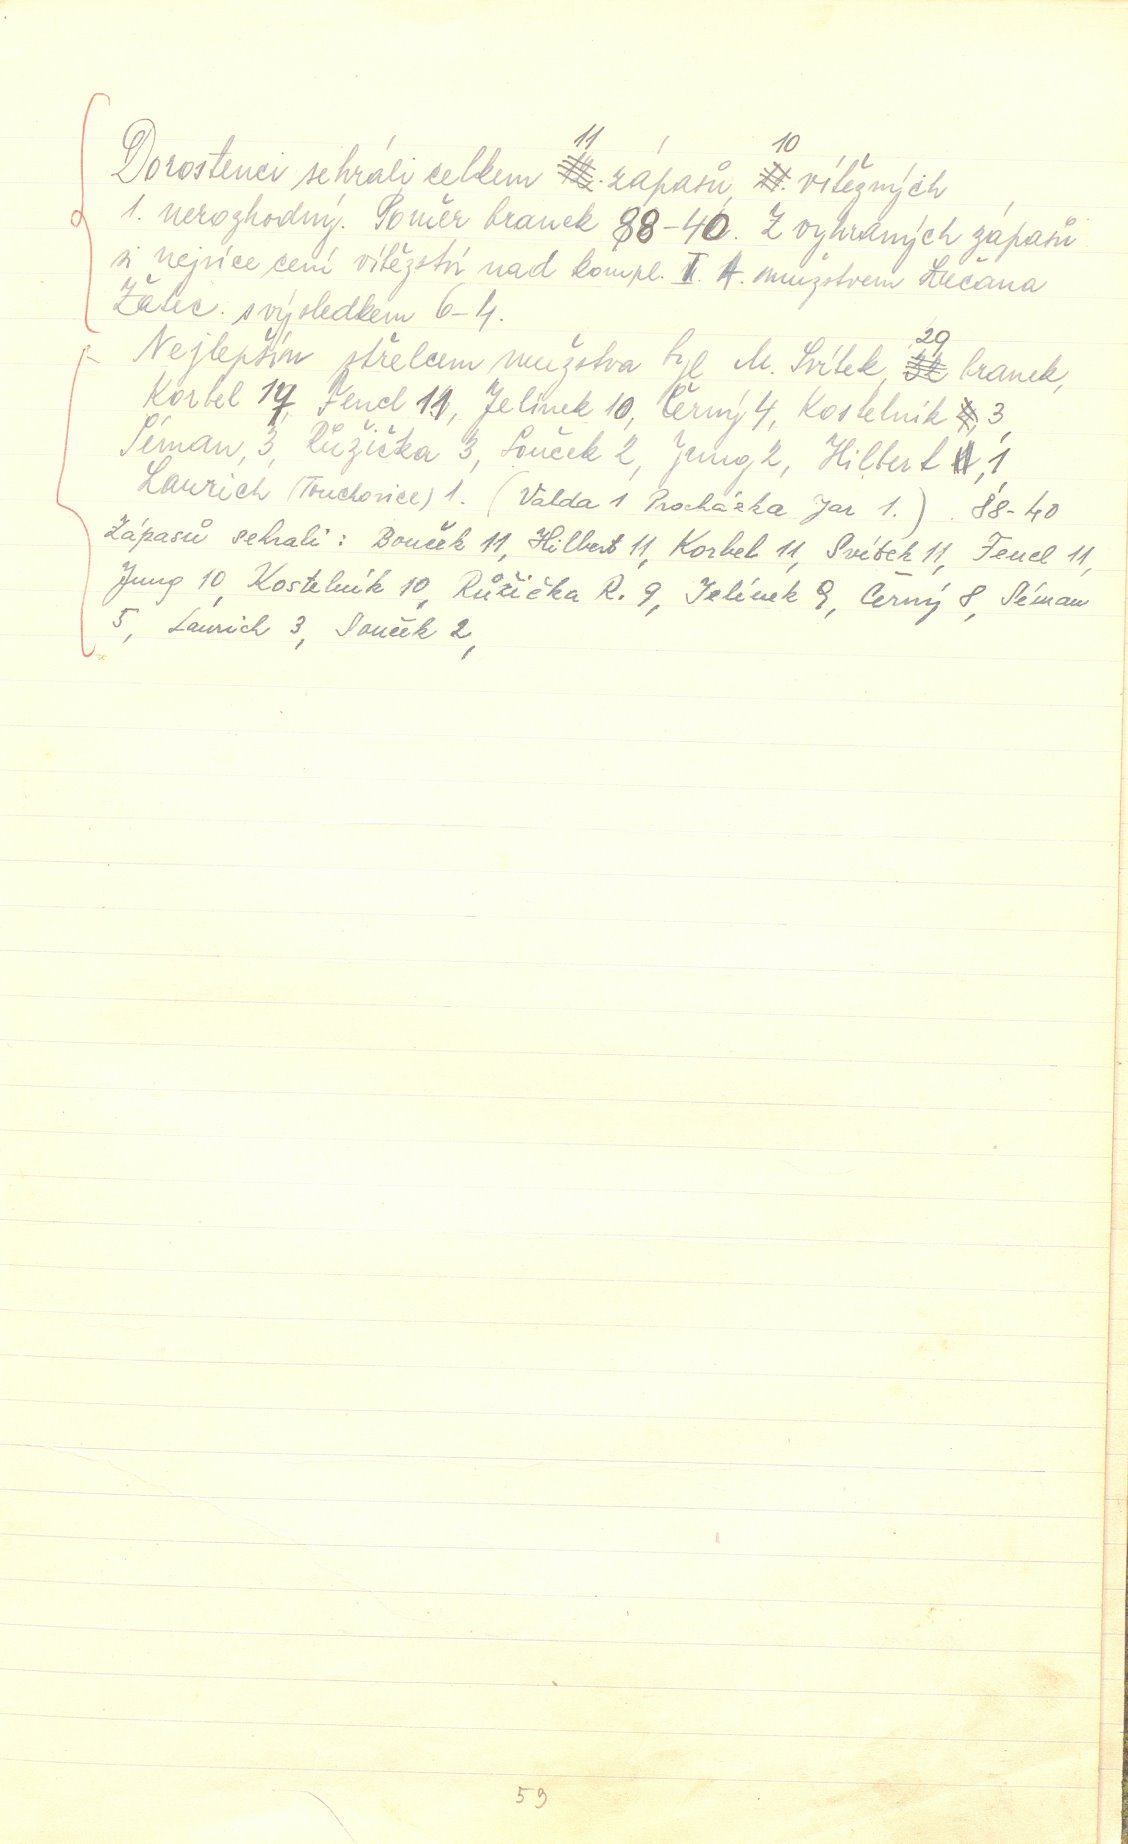 Dorostenci sehráli celkem 11 zápasů, 10 vítězných
1. nerozhodný. Poměr branek 88-40. Z vyhraných zápasů
si nejvíce cení vítězství nad kompl. I. A. mužstvem Lučana
Žatec. s výsledkem 6-4.
Nejlepším střelcem mužstva byl M. Svítek, 29 branek,
Korbel 17, Fencl 11, Jelínek 10, Černý 4, Kostelník 3,
Séman, 3, Růžička 3, Souček 2, Jung 2, Hilbert 1,
Laurich (Touchovice) 1. (Valda 1 Procházka Jar 1.). 88-40
Zápasů sehrali: Bouček 11, Hilbert 11, Korbel 11, Svítek 11, Fencl 11,
Jung 10, Kostelník 10, Růžička R. 9, Jelínek 9, Černý 8, Séman
5, Laurich 3, Souček 2,
59